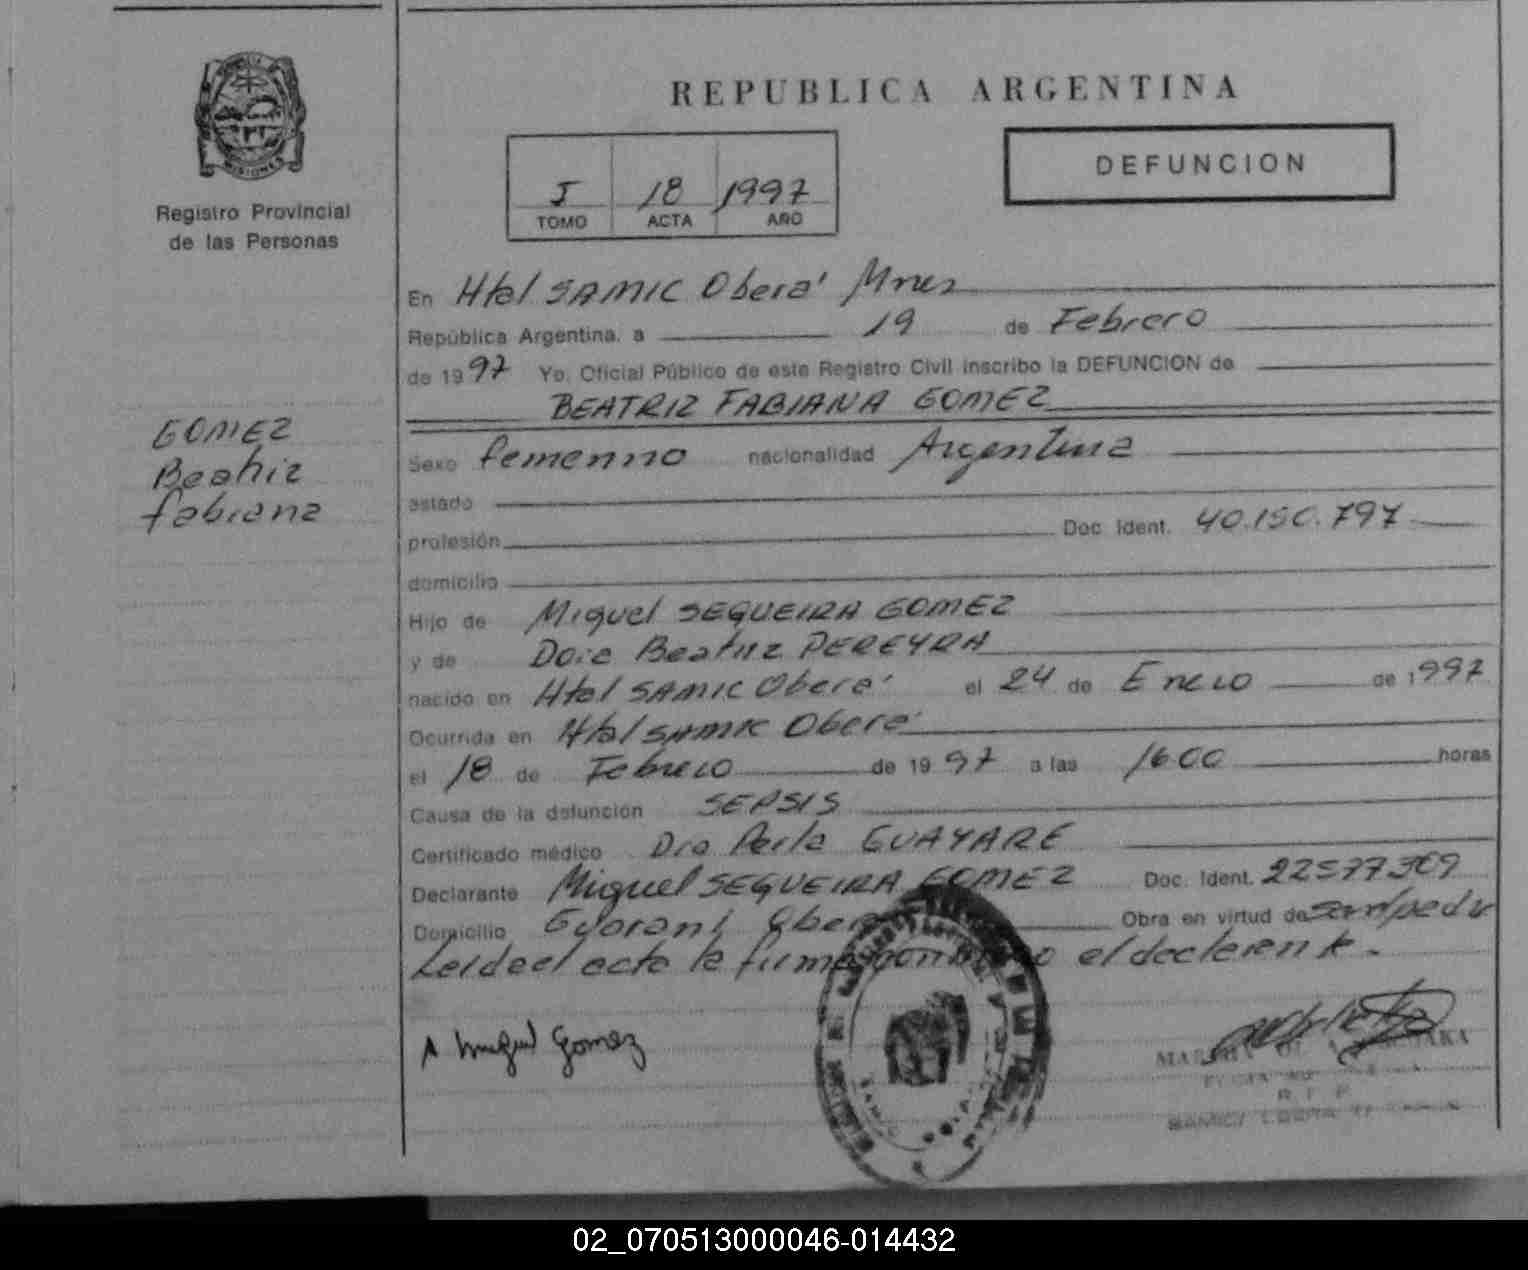 MISIONES
Registro Provincial
de las Personas
GOMEZ
Beatriz
fabiana
REPUBLICA ARGENTINA
J 18 1997
TOMO ACTA AÑO
DEFUNCION
En Htal SAMIC Oberá Mnes
República Argentina, a 19 de Febrero
de 1997 Yo, Oficial Público de este Registro Civil inscribo la DEFUNCION de
BEATRIZ FABIANA GOMEZ
Sexo femenino nacionalidad Argentina
estado
profesión Doc. Ident. 40.150.797
domicilio
Hijo de Miguel SEQUEIRA GOMEZ
y de Beatriz PEREYRA
nacido en Htal SAMIC Oberá el 24 de Enero de 1997
Ocurrida en Htal SAMIC Oberá
el 18 de Febrero de 1997 a las 1600 horas
Causa de la defunción SEPSIS
Certificado médico Dra Perla GUAYARE
Declarante Miguel SEQUEIRA GOMEZ Doc. Ident. 22577309
Domicilio Guarani Obera Obra en virtud de
Leida el acta la firma el declarante.
Miguel Gomez
R P P
02_070513000046-014432